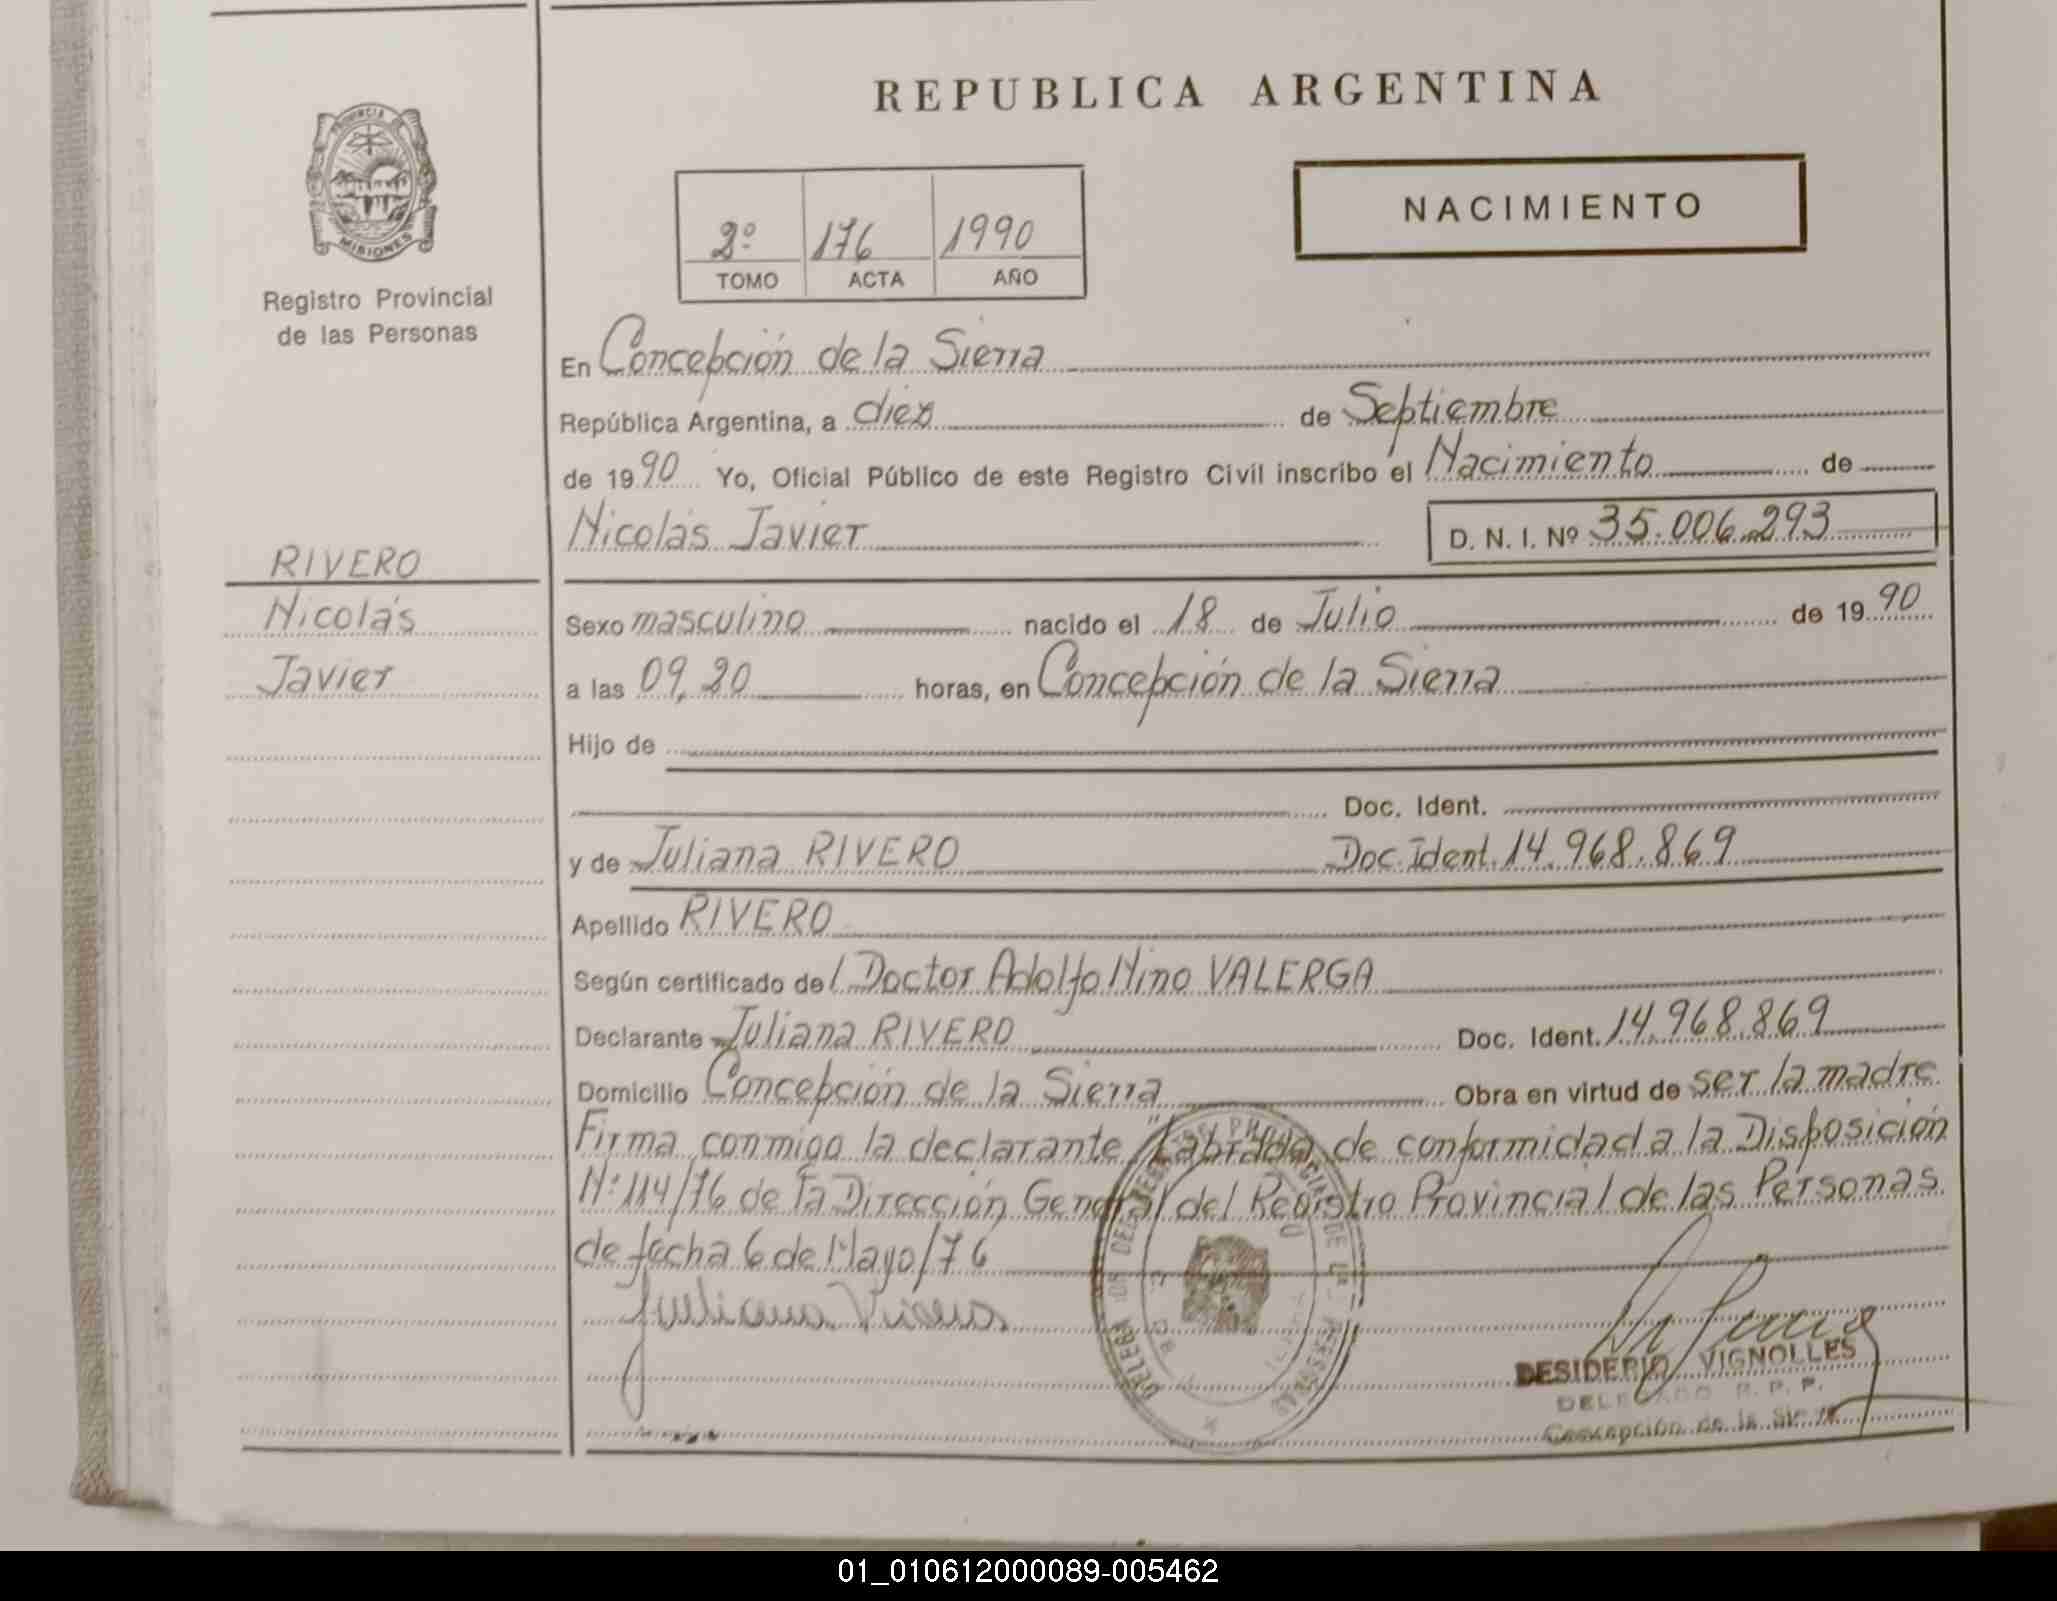 REPUBLICA ARGENTINA
PROVINCIA DE
MISIONES
Registro Provincial
de las Personas
2º 176 1990
TOMO ACTA AÑO
NACIMIENTO
En Concepción de la Sierra
República Argentina, a diez de Septiembre
de 1990 Yo, Oficial Público de este Registro Civil inscribo el Nacimiento de
Nicolás Javier D. N. I. Nº 35.006.293
RIVERO
Nicolás
Javier
Sexo masculino nacido el 18 de Julio de 1990
a las 09,20 horas, en Concepción de la Sierra
Hijo de
Doc. Ident.
y de Juliana RIVERO Doc. Ident. 14.968.869
Apellido RIVERO
Según certificado del Doctor Adolfo Nino VALERGA
Declarante Juliana RIVERO Doc. Ident. 14.968.869
Domicilio Concepción de la Sierra Obra en virtud de ser la madre
Firma conmigo la declarante "Labrada de conformidad a la Disposición
Nº 114/76 de la Dirección General del Registro Provincial de las Personas
de fecha 6 de Mayo/76
Juliana Rivero
DESIDERIO VIGNOLLES
DELEGADO R. P. P.
Concepción de la Sierra
01_010612000089-005462